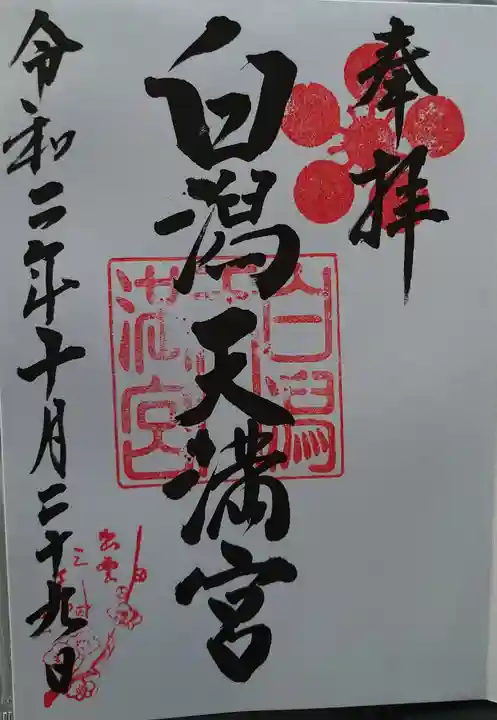 奉拝
白潟天満宮
白潟
満宮
令和二年十月二十九日
出雲